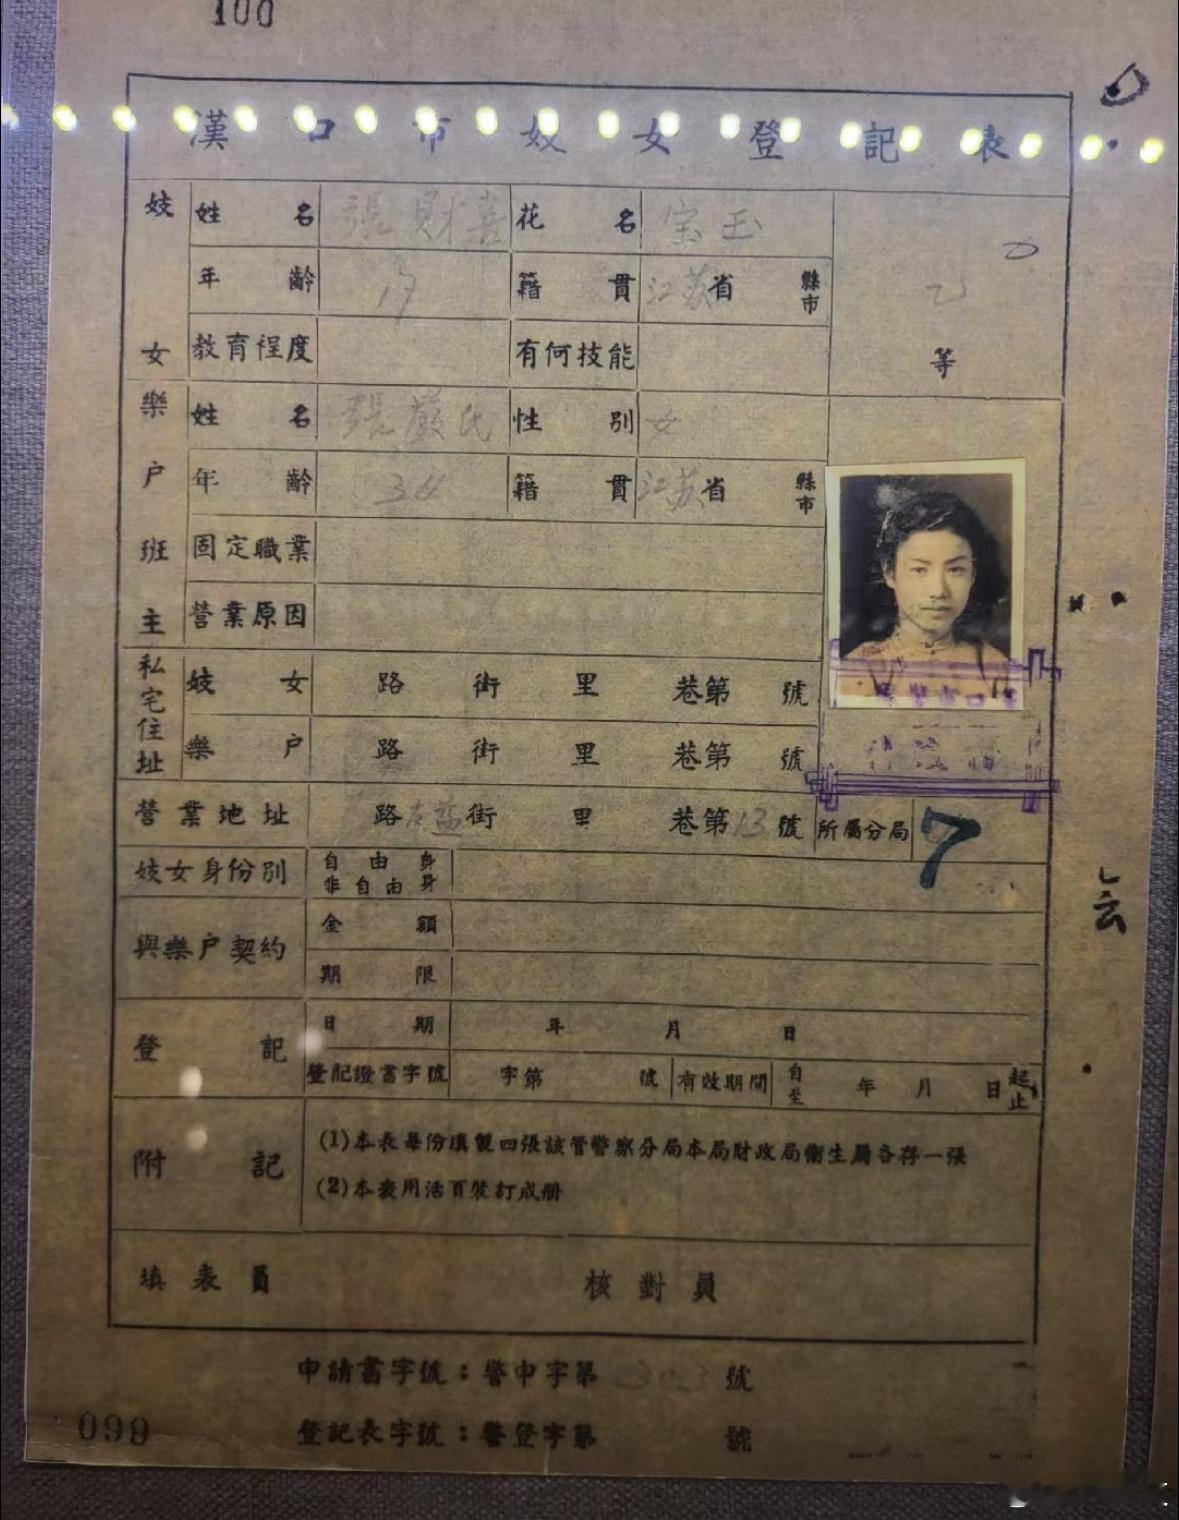 100
漢口市妓女登記表
妓女 姓名 張財喜 花名 宝玉
年齡 籍貫 江苏省 縣市 乙等
教育程度 有何技能
樂户班主 姓名 張嚴氏 性別 女
年齡 34 籍貫 江苏省 縣市
固定職業
營業原因
私宅住址 妓女 路 街 里 巷第 號
樂户 路 街 里 巷第 號
營業地址 路 街 里 巷第13號 所屬分局 7
妓女身份別 自由身 非自由身
與樂户契約 金額
期限
登記 日期 年 月 日
登記證書字號 字第 號 有效期間 自至 年 月 日 起止
附記 (1)本表每份填製四張該管警察分局本局財政局衛生局各存一張
(2)本表用活頁裝訂成册
填表員 核對員
申請書字號:警申字第 號
登記表字號:警登字第 號
099